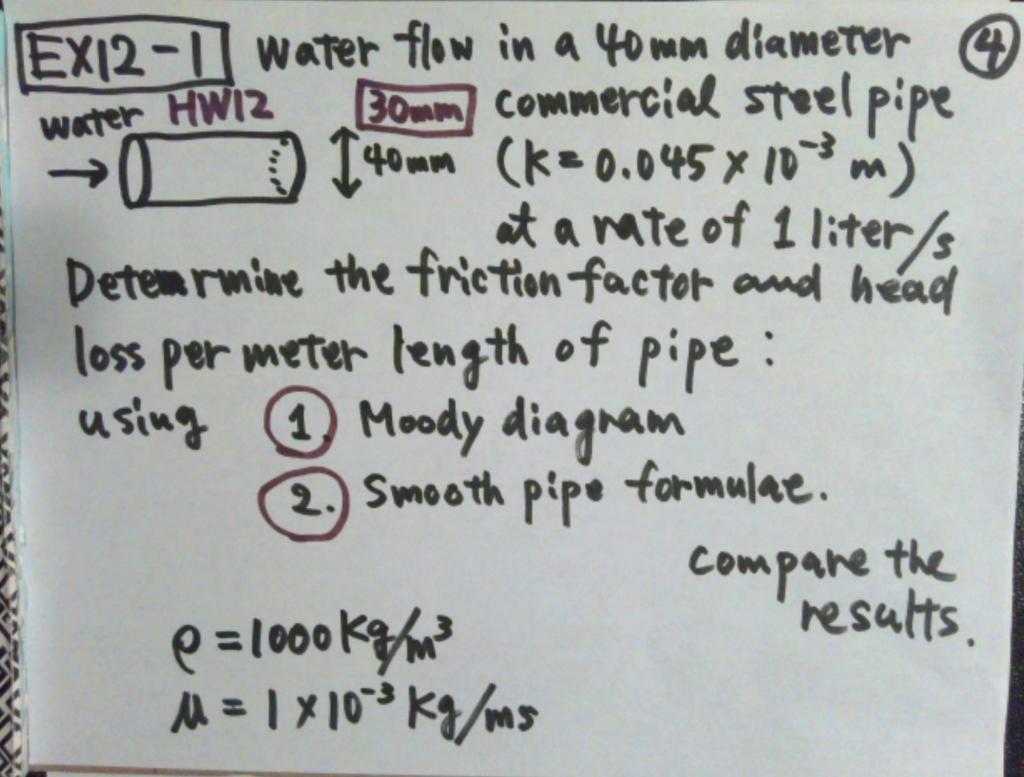 EX12-1 water flow in a 40mm diameter ④
water HW12 30mm commercial steel pipe
40mm (k = 0.045 × 10⁻³ m)
at a rate of 1 liter/s
Determine the friction factor and head
loss per meter length of pipe :
using 1. Moody diagram
2. Smooth pipe formulae.
compare the
results.
ρ = 1000 kg/m³
μ = 1 × 10⁻³ kg/ms